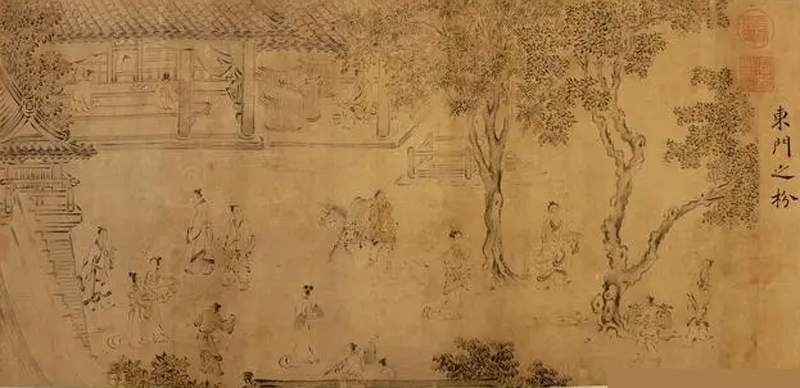 東門之枌